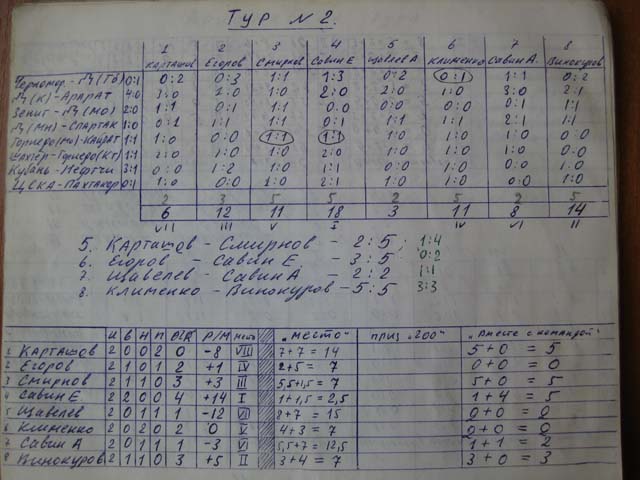 ТУР №2.
1 2 3 4 5 6 7 8
Карташов Егоров Смирнов Савин Е Щавелев А Клименко Савин А. Винокуров
Черномор.-Д(Тб) 0:1 0:2 0:3 1:1 1:3 0:2 0:1 1:1 0:2
Д(К)-Арарат 4:0 3:0 2:0 1:0 2:0 2:0 1:0 3:0 2:1
Зенит-Д(Мо) 2:0 1:1 0:1 1:1 0:0 0:0 0:0 0:1 1:1
Д(Мн)-Спартак 1:0 0:1 1:1 1:1 0:1 1:1 1:1 2:1 1:1
Торпедо(Мо)-Кайрат 1:1 1:0 0:0 1:1 1:1 1:0 1:0 1:0 0:0
Шахтер-Торпедо(Кт) 1:1 2:0 1:0 1:0 2:0 1:0 1:0 1:0 0:0
Кубань-Нефтчи 3:1 0:0 1:2 1:0 1:1 0:0 1:0 0:0 1:0
ЦСКА-Пахтакор 0:1 1:0 0:0 1:0 2:1 1:0 1:0 0:0 1:0
2 3 5 5 2 5 2 5
6 12 11 18 3 11 8 14
VII III V I IV VI II
5. Карташов - Смирнов - 2:5; 1:4
6. Егоров - Савин Е - 3:5 0:2
7. Щавелев - Савин А - 2:2 1:1
8. Клименко - Винокуров - 5:5 3:3
И В Н П Р/М место "место" приз "200" "Вместе с командой"
1 Карташов 2 0 0 2 0 -8 VIII 7+7=14 5+0=5
2 Егоров 2 1 0 1 2 +1 IV 2+5=7 0+0=0
3 Смирнов 2 1 1 0 3 +3 III 5,5+1,5=7 5+0=5
4 Савин Е 2 2 0 0 4 +14 I 1+1,5=2,5 1+4=5
5 Щавелев 2 0 1 1 1 -12 VII 8+7=15 0+0=0
6 Клименко 2 0 2 0 2 0 V 4+3=7 0+0=0
7 Савин А 2 0 1 1 1 -3 VI 5,5+7=12,5 1+1=2
8 Винокуров 2 1 1 0 3 +5 II 3+4=7 3+0=3